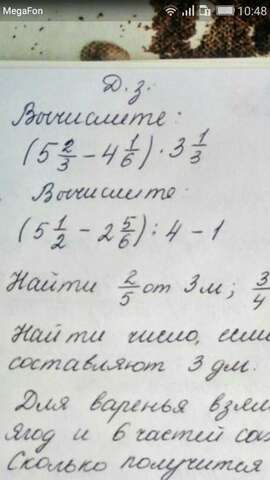 MegaFon 10:48
Д.з.
Вычислите:
(5 2/3 - 4 1/6) · 3 1/3
Вычислите:
(5 1/2 - 2 5/6) : 4 - 1
Найти 2/5 от 3 м; 3/4
Найти число, если
составляют 3 дм.
Для варенья взял
ягод и 6 частей сах
Сколько получится